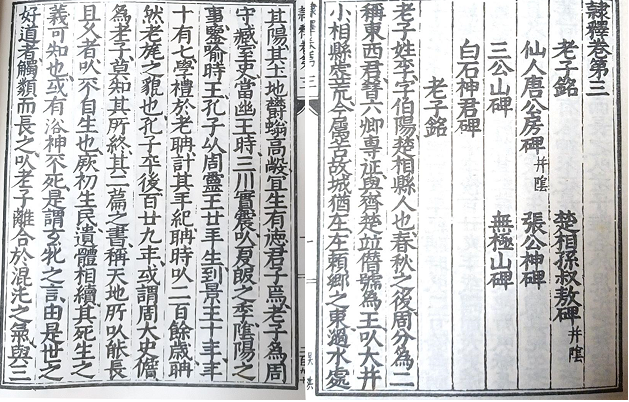 隸釋卷第三
老子銘 楚相孫叔敖碑并陰
仙人唐公房碑并陰 張公神碑
三公山碑 無極山碑
白石神君碑
老子銘
老子姓李字伯陽楚相縣人也春秋之後周分為二
稱東西君晉六卿專征與齊楚並僭號為王以大并
小相縣虛荒今屬苦故城猶在在賴鄉之東渦水處
隸釋卷第三
一
其陽其土地鬱塕高敞宜生有德君子焉老子為周
守臧室史當幽王時三川實震以夏殷之季陰陽之
事鑒喻時王孔子以周靈王廿年生到景王十年年
十有七學禮於老聃計其年紀聃時以二百餘歲聃
然老旄之貌也孔子卒後百廿九年或謂周大史儋
為老子莫知其所終其二篇之書稱天地所以能長
且久者以不自生也厥初生民遺體相續其死生之
義可知也或有浴神不死是謂玄牝之言由是世之
好道者觸類而長之以老子離合於混沌之氣與三